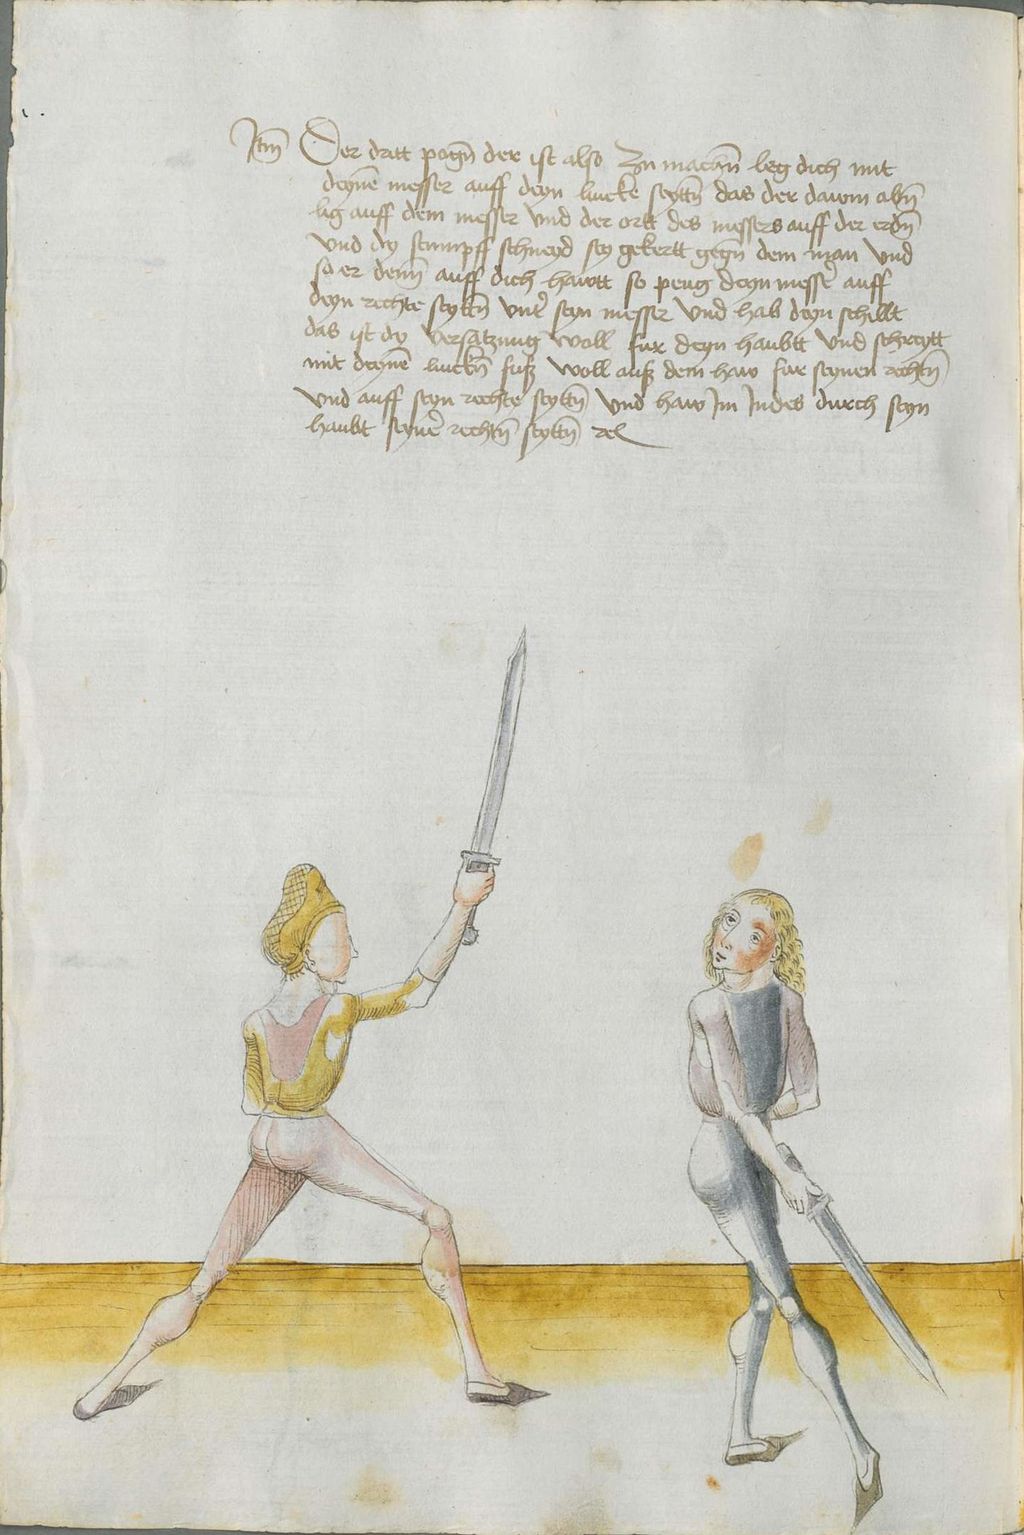 Itm Der dritt pogñ der ist also Zu machñ leg dich mit
deynẽ messer auff deyn lincke seyttñ das der dawm obñ
lig auff dem messer vnd der ortt des messers auff der erdñ
vnd dy stumpff schneyd sey gekertt gegñ dem man vnd
so er denñ auff dich hawtt so peug deyn messer auff
deyn rechte seyttñ vnter seyn messer vnd hab deyn schillt
das ist dy versatzung woll fur deyn haubtt vnd schreytt
mit deynẽ linckñ fuß woll auß dem haw fur seynen rechtñ
vnd auff seyn rechte seyttñ vnd haw Im Indes durch seyn
haubt seyner rechtñ seyttñ